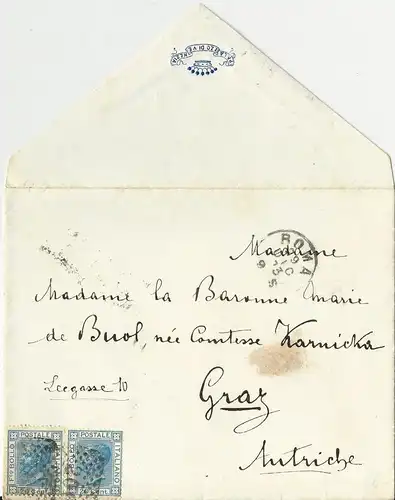 PALAZZO DI VENEZIA
ROMA
Madame
Madame la Baronne Marie
de Buol, née Comtesse Karnicka
Leegasse 10
Graz
Autriche
BOLLO POSTALE ITALIANO
POSTALE ITALIANO